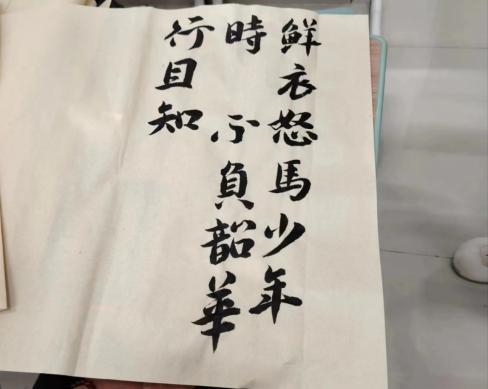 鮮衣怒馬少年
時 不負韶華
行且知